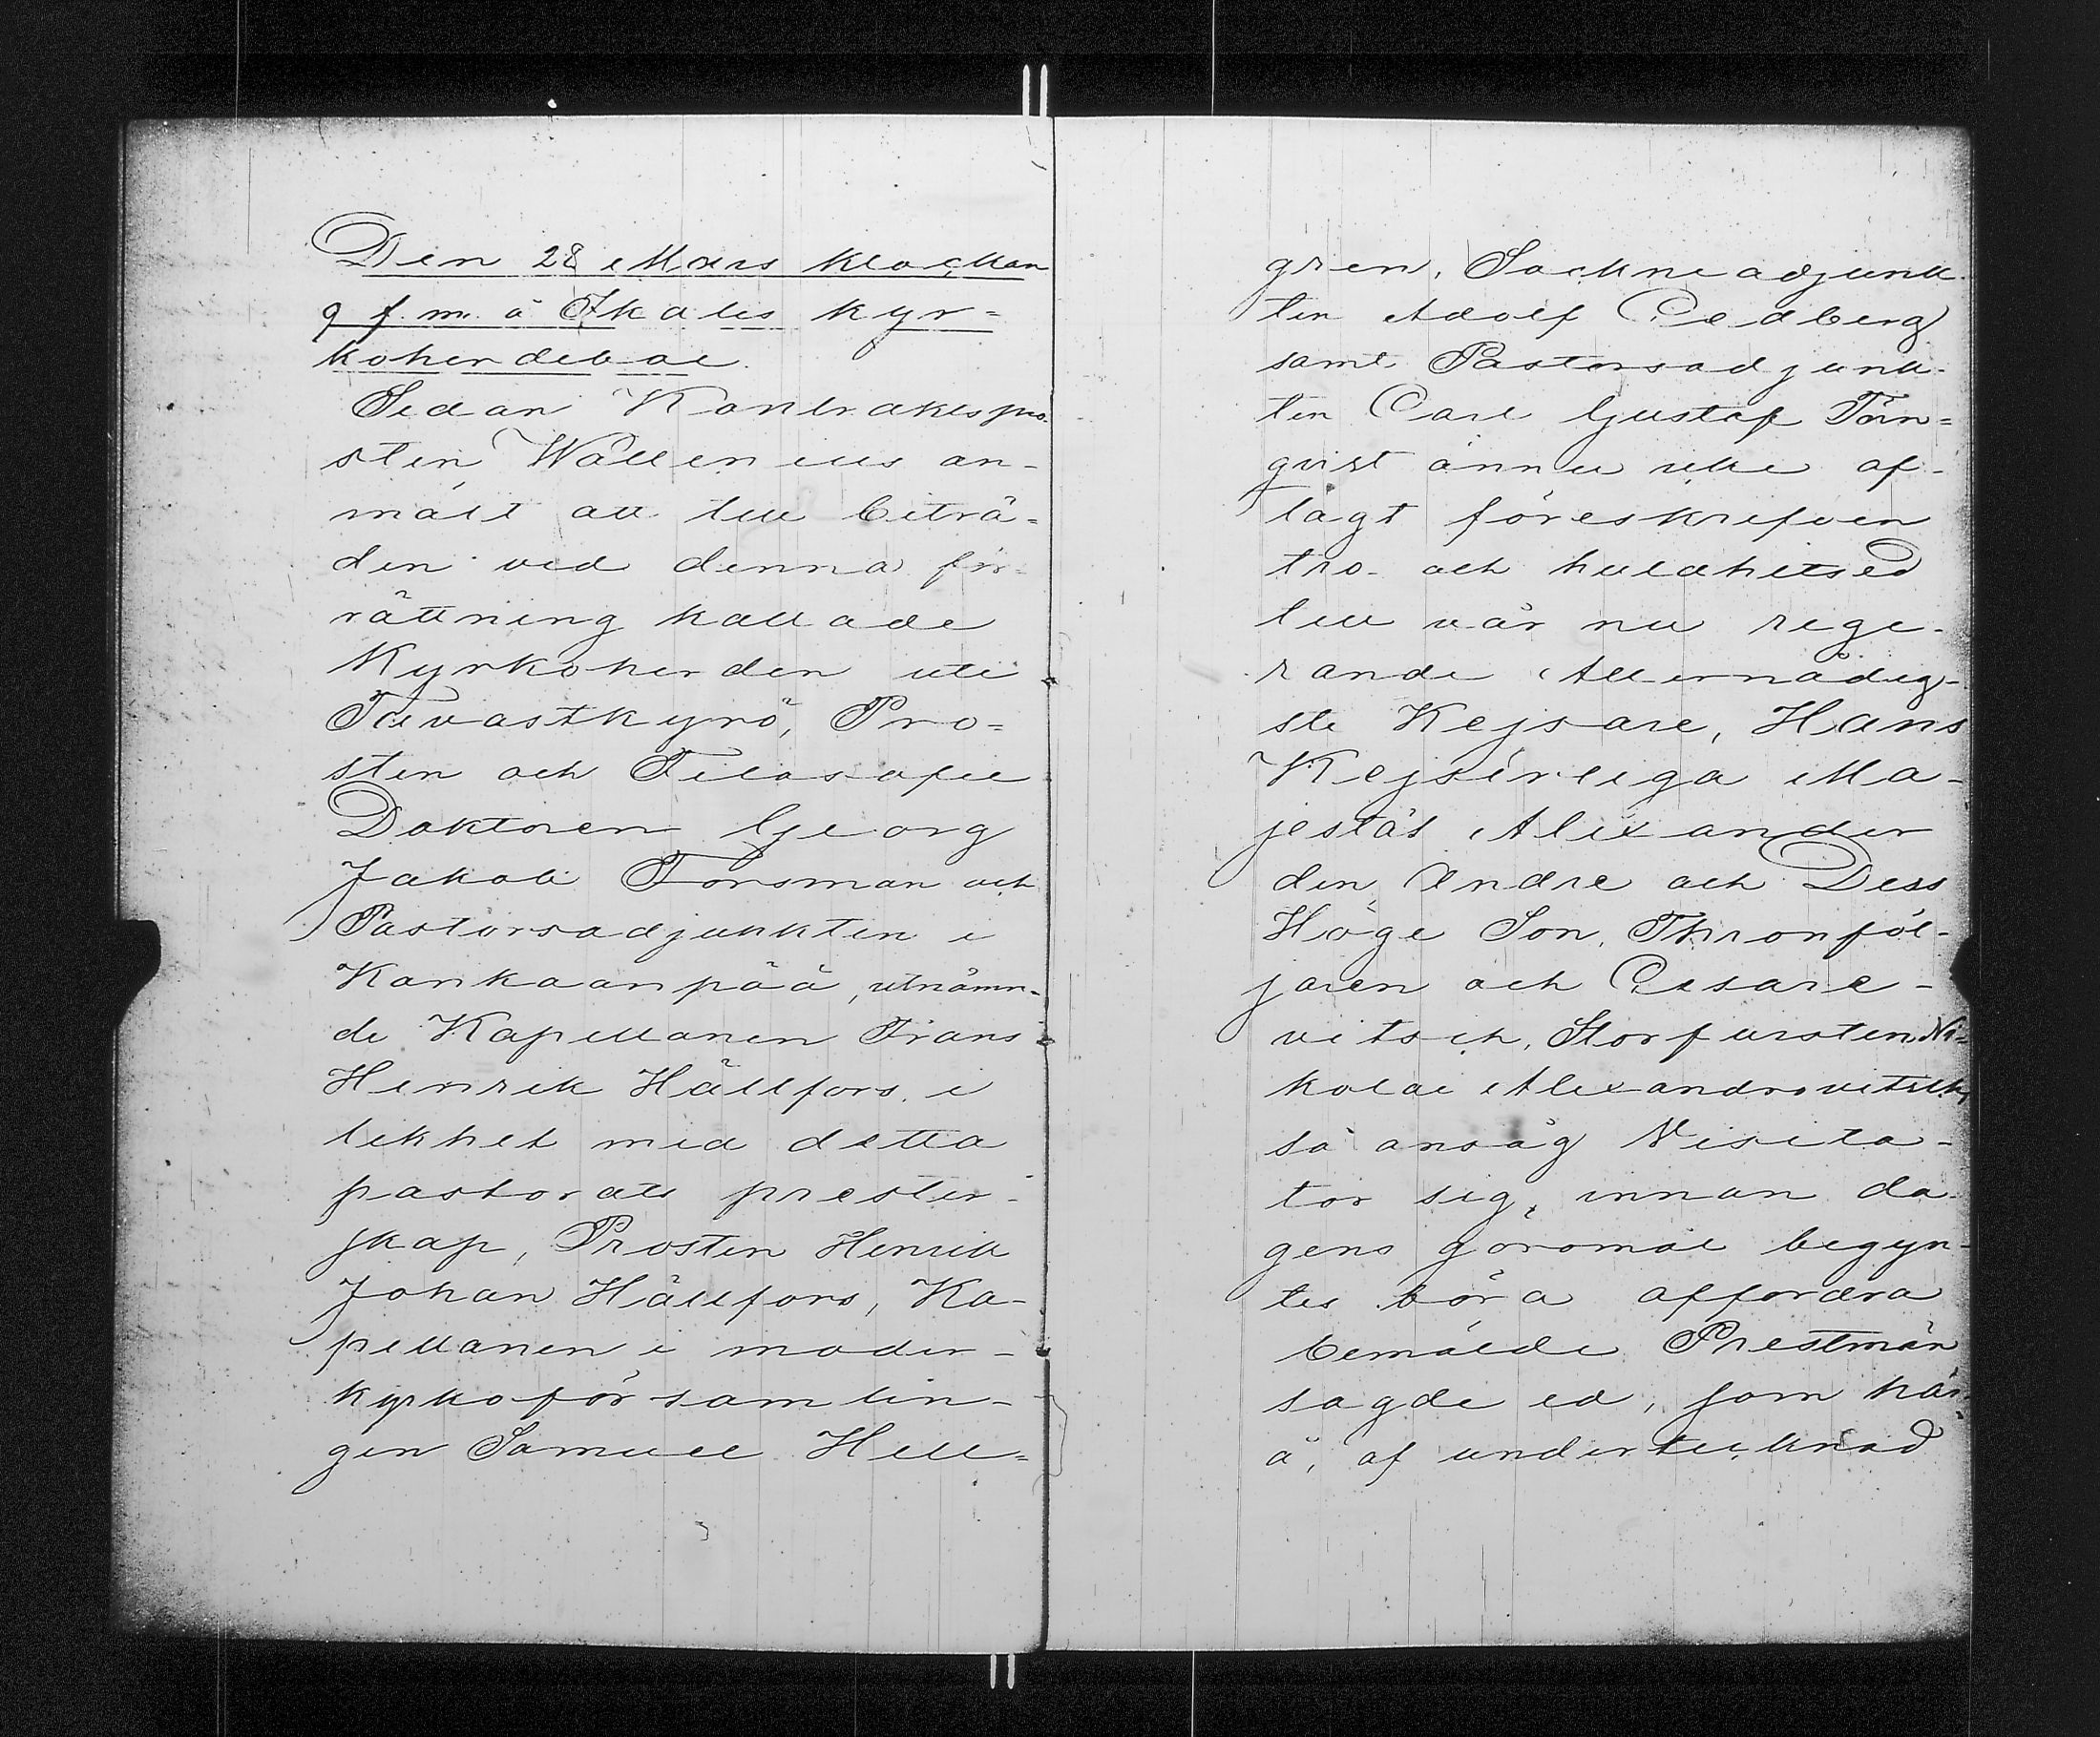 Den 28 Mars klockan
9 f. m. å Ikalis kyr=
koherdebol.
Sedan Kontraktspro-
sten Wallenius an-
mält att till biträ-
den vid denna för-
rättning kallade
Kyrkoherden uti
Tavastkyrö, Pro=
sten och Filosofie
Doktoren Georg
Jakob Forsman och
Pastorsadjunkten i
Kankaanpää, utnämn-
de Kapellanen Frans
Henrik Hällfors, i
likhet med detta
pastorats prester-
skap, Prosten Henrik
Johan Hällfors, Ka-
pellanen i moder-
kyrkoförsamlin-
gen Samuel Hell=
gren, Sockneadjunk-
ten Adolf Cedberg
samt Pastorsadjunk-
ten Carl Gustaf Törn=
qvist ännu icke af-
lagt föreskrifven
tro- och huldhetsed
till vår nu rege-
rande Allernådig-
ste Kejsare, Hans
Kejserliga Ma-
jestät Alexander
den Andre och Dess
Höge Son, Thronföl-
jaren och Cesare-
vitsch, Storfursten Ni-
kolai Alexandrovitsch,
så ansåg Visita-
tor sig, innan da-
gens göromål begyn-
tes böra affordra
bemälde Prestmän
sagde ed, som här-
å, af undertecknad